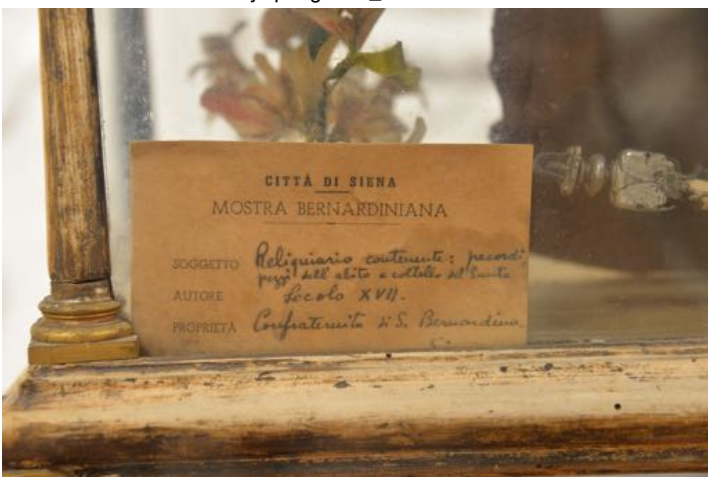 CITTÀ DI SIENA
MOSTRA BERNARDINIANA
SOGGETTO Reliquiario contenente: precordi,
pezzi dell'abito e coltello del Santo
AUTORE Secolo XVII.
PROPRIETÀ Confraternita di S. Bernardino.